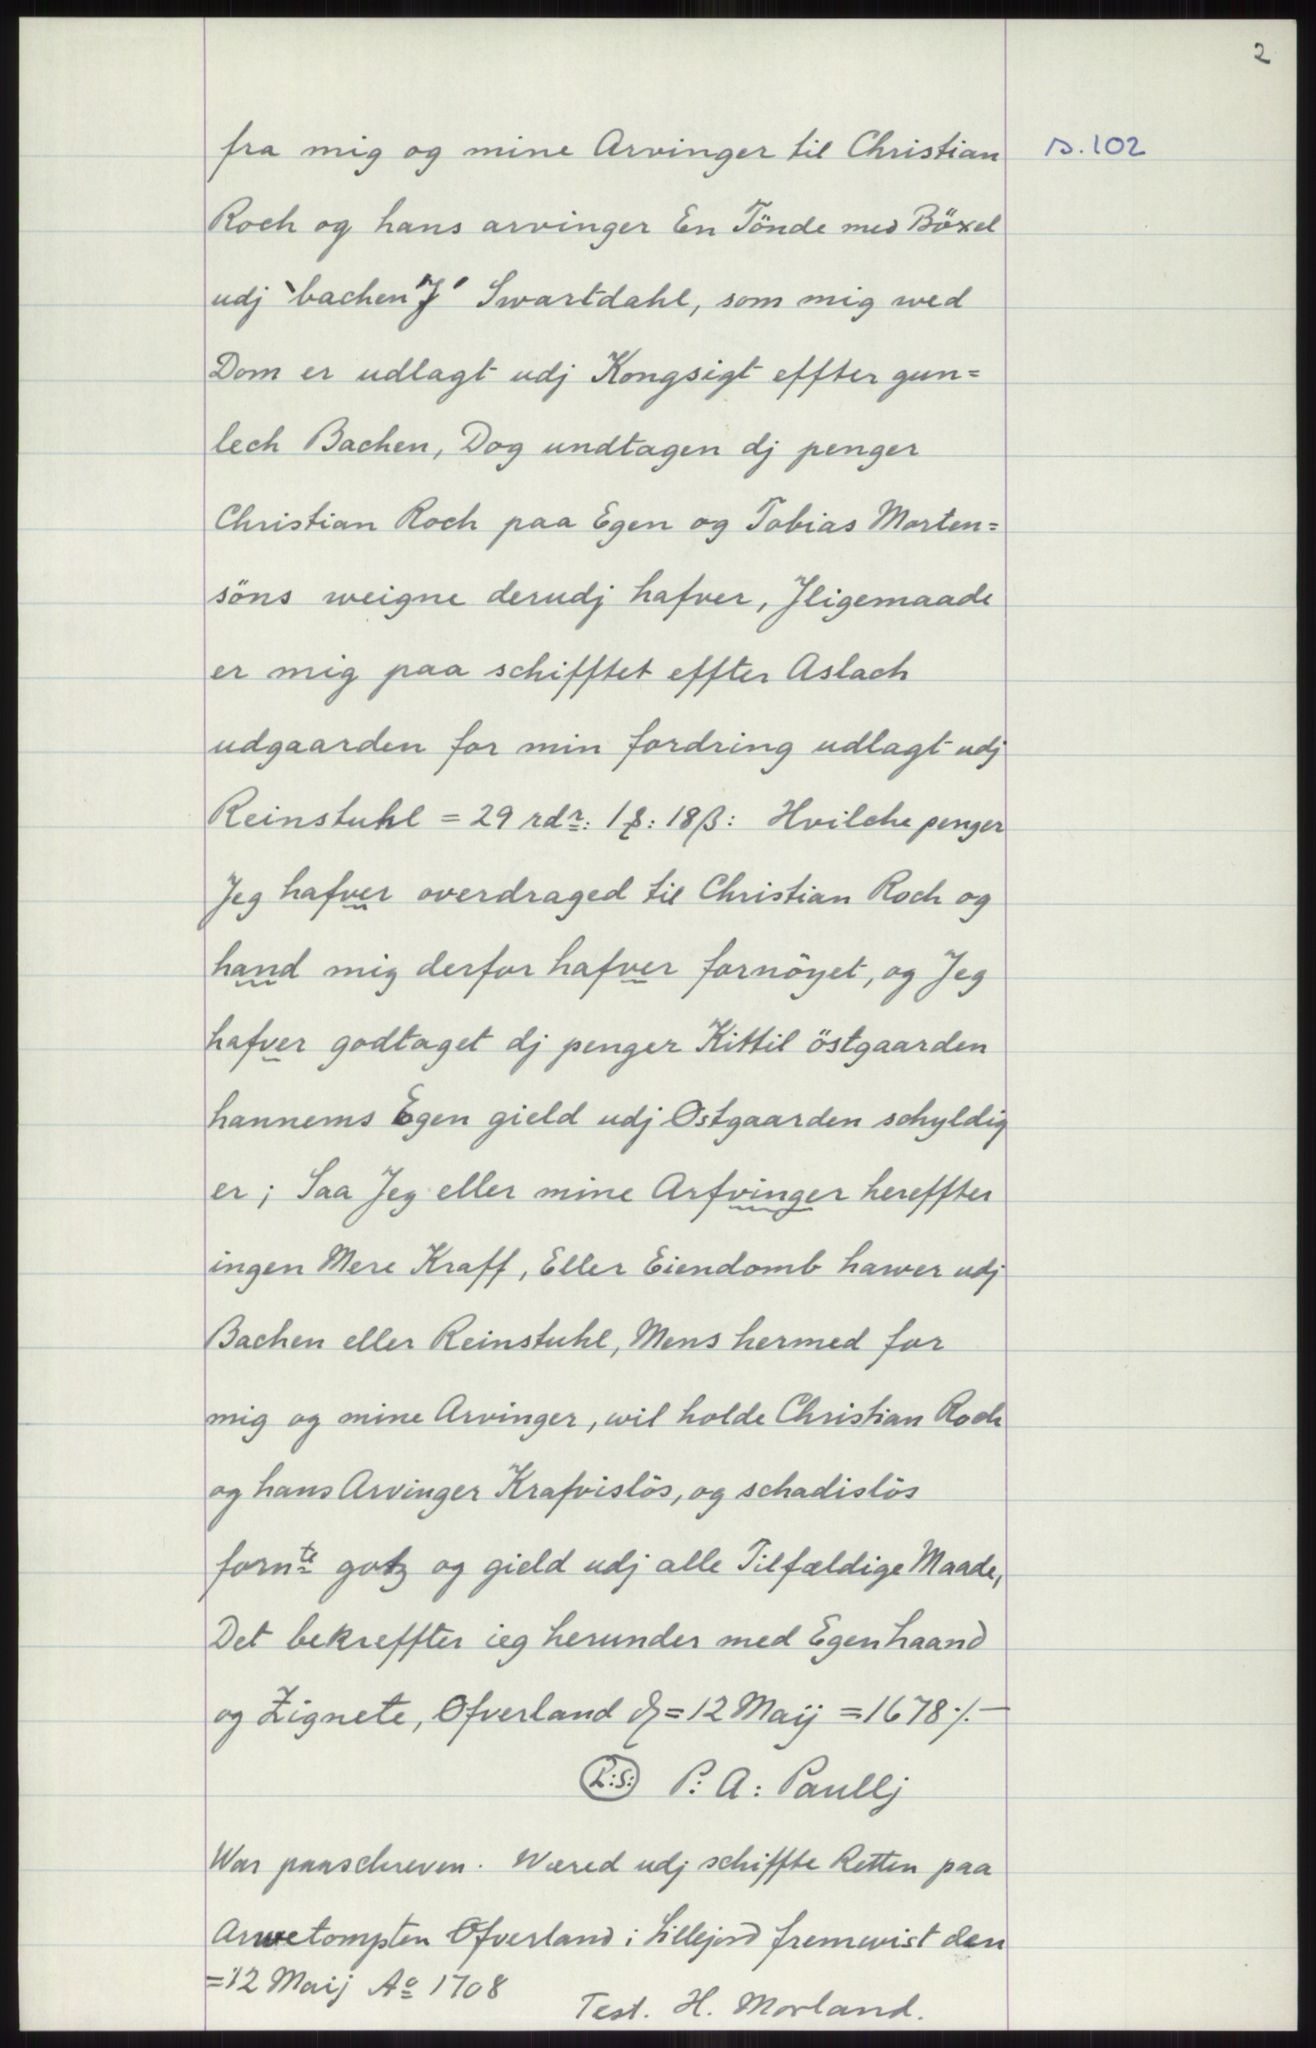 2
fra mig og mine Arvinger til Christian
s. 102
Roch og hans arvinger En Tönde med Böxel
udj `bachen "J" Swartdahl, som mig wed
Dom er udlagt udj Kongsigt effter gun=
lech Bachen, Dog undtagen dj penger
Christian Roch paa Egen og Tobias Morten=
söns weigne derudj hafver, Jligemaade
er mig paa schifftet effter Aslach
udgaarden for min fordring udlagt udj
Reinstuhl = 29 rdr: 1 : 18 β: Hvilche penger
Jeg hafver overdraged til Christian Roch og
hand mig derfor hafver fornöyet, og Jeg
hafver godtaget dj penger Kittil östgaarden
hannems Egen gield udj Ostgaarden schyldig
er; Saa Jeg eller mine Arfvinger hereffter
ingen Mere Kraff, Eller Eiendomb hawer udj
Bachen eller Reinstuhl, Mens hermed for
mig og mine Arvinger, wil holde Christian Roch
og hans Arvinger Krafvislös, og schadislös
fornte gotz og gield udj alle Tilfældige Maade,
Det bekreffter ieg herunder med Egenhaand
og Zignete, Ofverland = 12 Maij = 1678 ·/.—
L:S: P: A: Paullj
War paaschreven. Wæred udj schiffte Retten paa
Arwetompten Ofverland i Lillejord fremwist den
= 12 Maij Ao 1708
Test. H. Morland.